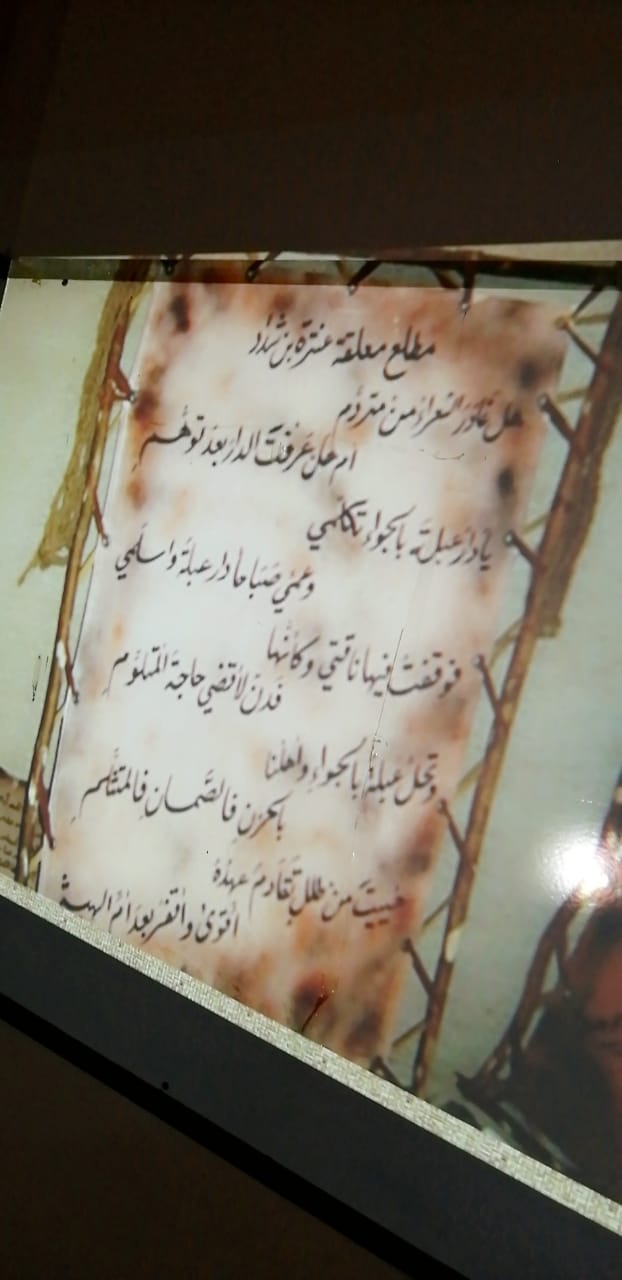 مطلع معلقة عنترة بن شداد
هل غادَرَ الشعراءُ منْ متردَّم
ام هل عرفتَ الدارَ بعدَ توهُّمِ
يا دارَ عبلَةَ بالجواءِ تكلَّمي
وعمي صَبَاحا دار عبلةَ واسلَمي
فوقفتُ فيها ناقتي وكأنَّها
فَدنٌ لأقضي حاجةَ المُتلَوِّمِ
وتحلُّ عبلةُ بالجواءِ وأهلُنا
بالحزنِ فالصَّمانِ فالمتثلَّمِ
حُييتَ منْ طللٍ تَقَادَمَ عهدُهُ
أقوىٰ وأقفرَ بعدَ أمِّ الهيثمِ